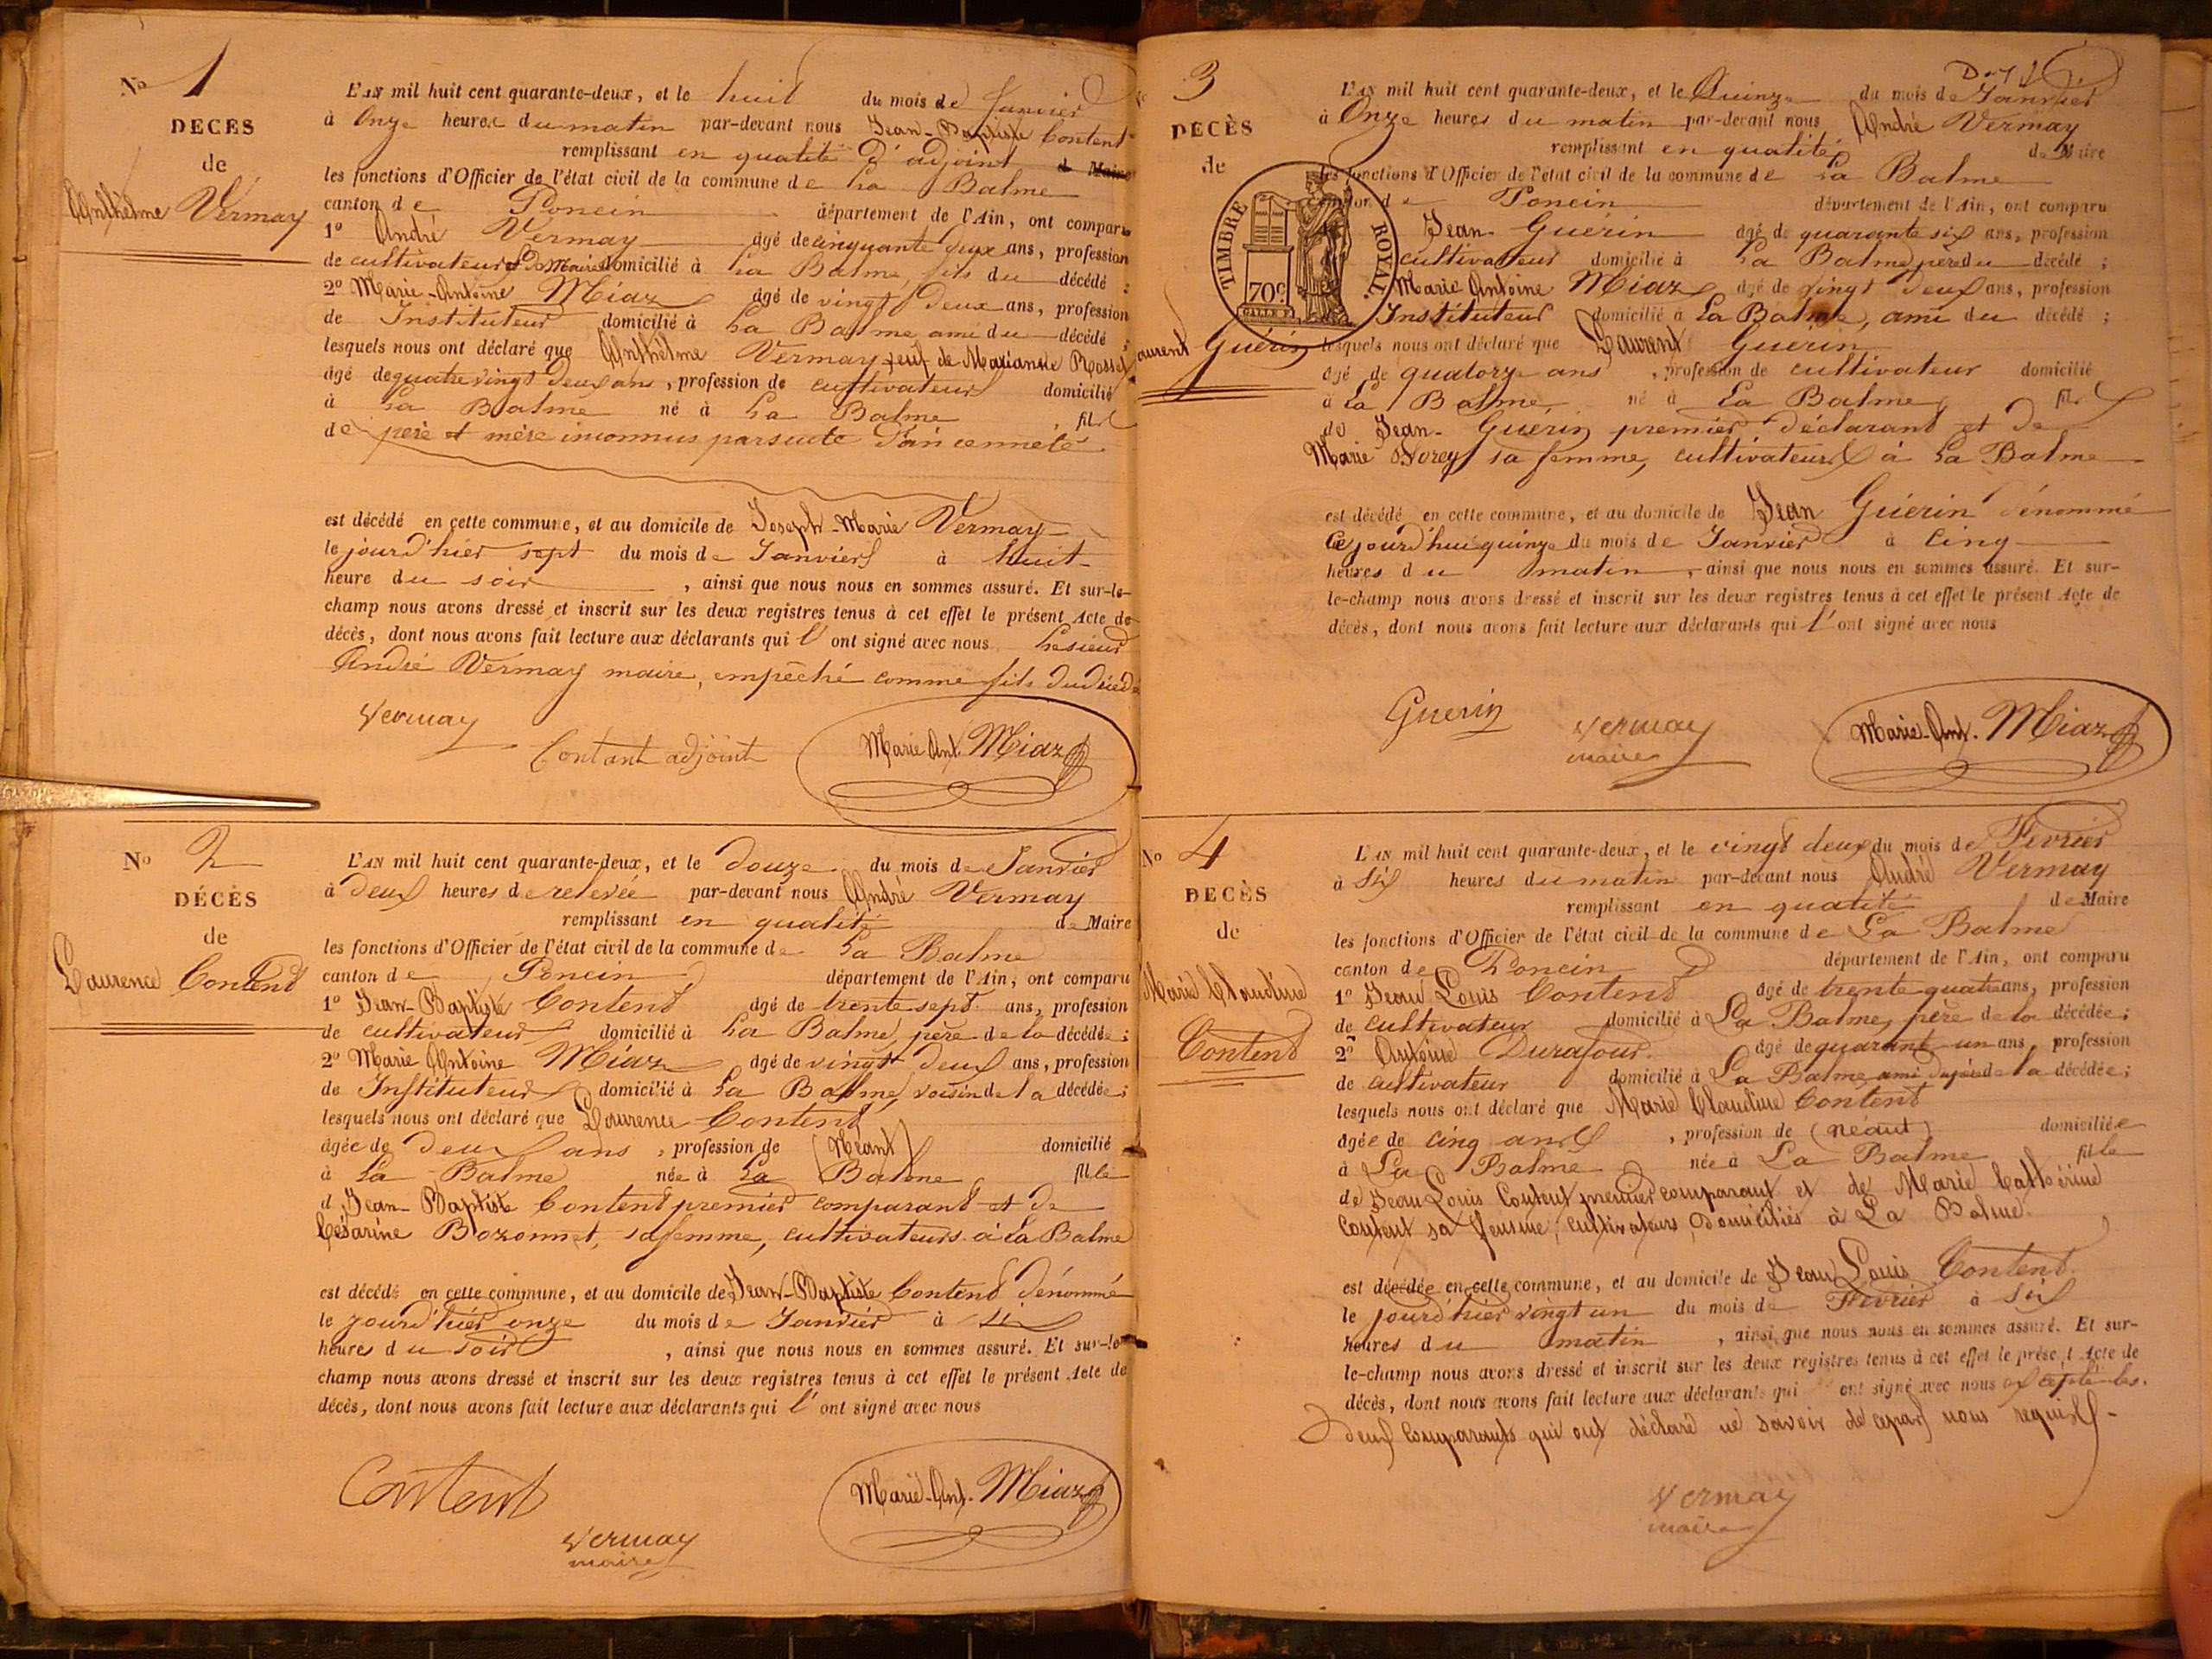 N° 1
DECÈS
de
Anthelme Vermay
L'AN mil huit cent quarante-deux, et le huit du mois de Janvier
à Onze heures du matin par-devant nous Jean-Baptiste Content
remplissant en qualité d'adjoint
les fonctions d'Officier de l'état civil de la commune de La Balme
canton de Poncin département de l'Ain, ont comparu
1° André Vermay âgé de cinquante deux ans, profession
de cultivateur & Maire domicilié à La Balme, fils du décédé ;
2° Marie-Antoine Miaz âgé de vingt deux ans, profession
de Instituteur domicilié à La Balme ami du décédé ;
lesquels nous ont déclaré que Anthelme Vermay veuf de Marianne Rosset
âgé de quatre vingt deux ans, profession de cultivateur domicilié
à La Balme né à La Balme fils
de père et mère inconnus par suite d'ancienneté
est décédé en cette commune, et au domicile de Joseph-Marie Vermay
le jourd'hier sept du mois de Janvier à huit
heure du soir, ainsi que nous nous en sommes assuré. Et sur-le-
champ nous avons dressé et inscrit sur les deux registres tenus à cet effet le présent Acte de
décès, dont nous avons fait lecture aux déclarants qui l'ont signé avec nous Le sieur
André Vermay maire, empêché comme fils du décédé
Vermay
Contant adjoint
Marie Ant. Miaz
N° 2
DÉCÈS
de
Laurence Content
L'AN mil huit cent quarante-deux, et le douze du mois de Janvier
à deux heures de relevée par-devant nous André Vermay
remplissant en qualité de Maire
les fonctions d'Officier de l'état civil de la commune de La Balme
canton de Poncin département de l'Ain, ont comparu
1° Jean-Baptiste Content âgé de trente sept ans, profession
de cultivateur domicilié à La Balme, père de la décédée ;
2° Marie Antoine Miaz âgé de vingt deux ans, profession
de Instituteur domicilié à La Balme, voisin de la décédée ;
lesquels nous ont déclaré que Laurence Content
âgée de deux ans, profession de (Néant) domicilié
à La Balme née à La Balme fille
d Jean-Baptiste Content premier comparant et de
Césarine Bozonnet, sa femme, cultivateurs à La Balme
est décédé en cette commune, et au domicile de Jean-Baptiste Content dénommé
le jourd'hier onze du mois de Janvier à six
heures du soir, ainsi que nous nous en sommes assuré. Et sur-le-
champ nous avons dressé et inscrit sur les deux registres tenus à cet effet le présent Acte de
décès, dont nous avons fait lecture aux déclarants qui l'ont signé avec nous
Content
Vermay
maire
Marie-Ant. Miaz
3
DECÈS
de
Laurent Guérin
TIMBRE ROYAL.
70c
L'AN mil huit cent quarante-deux, et le Quinze du mois de Janvier
à Onze heures du matin par-devant nous André Vermay
remplissant en qualité de Maire
les fonctions d'Officier de l'état civil de la commune de La Balme
canton de Poncin département de l'Ain, ont comparu
Jean Guérin âgé de quarante six ans, profession
cultivateur domicilié à La Balme, père du décédé ;
Marie Antoine Miaz âgé de vingt deux ans, profession
Instituteur domicilié à La Balme, ami du décédé ;
lesquels nous ont déclaré que Laurent Guérin
âgé de quatorze ans, profession de cultivateur domicilié
à La Balme, né à La Balme, fils
de Jean Guérin premier déclarant et de
Marie sa femme, cultivateurs à La Balme
est décédé en cette commune, et au domicile de Jean Guérin dénommé
Ce jourd'hui quinze du mois de Janvier à Cinq
heures du matin, ainsi que nous nous en sommes assuré. Et sur-
le-champ nous avons dressé et inscrit sur les deux registres tenus à cet effet le présent Acte de
décès, dont nous avons fait lecture aux déclarants qui l'ont signé avec nous
Guerin
Vermay
maire
Marie-Ant. Miaz
N° 4
DECÈS
de
Marie Claudine
Content
L'AN mil huit cent quarante-deux, et le vingt deux du mois de Février
à Six heures du matin par-devant nous André Vermay
remplissant en qualité de Maire
les fonctions d'Officier de l'état civil de la commune de La Balme
canton de Poncin département de l'Ain, ont comparu
1° Jean Louis Content âgé de trente quatre ans, profession
de cultivateur domicilié à La Balme, père de la décédée ;
2° Antoine Durafour âgé de quarante un ans, profession
de cultivateur domicilié à La Balme ami du père de la décédée ;
lesquels nous ont déclaré que Marie Claudine Content
âgée de cinq ans, profession de (néant) domiciliée
à La Balme née à La Balme fille
de Jean Louis Content premier comparant et de Marie Cathérine
Content sa femme, cultivateurs, domiciliés à La Balme.
est décédée en cette commune, et au domicile de Jean Louis Content.
le jourd'hier vingt un du mois de Février à six
heures du matin, ainsi que nous nous en sommes assuré. Et sur-
le-champ nous avons dressé et inscrit sur les deux registres tenus à cet effet le présent Acte de
décès, dont nous avons fait lecture aux déclarants qui ont signé avec nous excepté les
deux comparants qui ont déclaré ne savoir de ce part nous requis
Vermay
maire